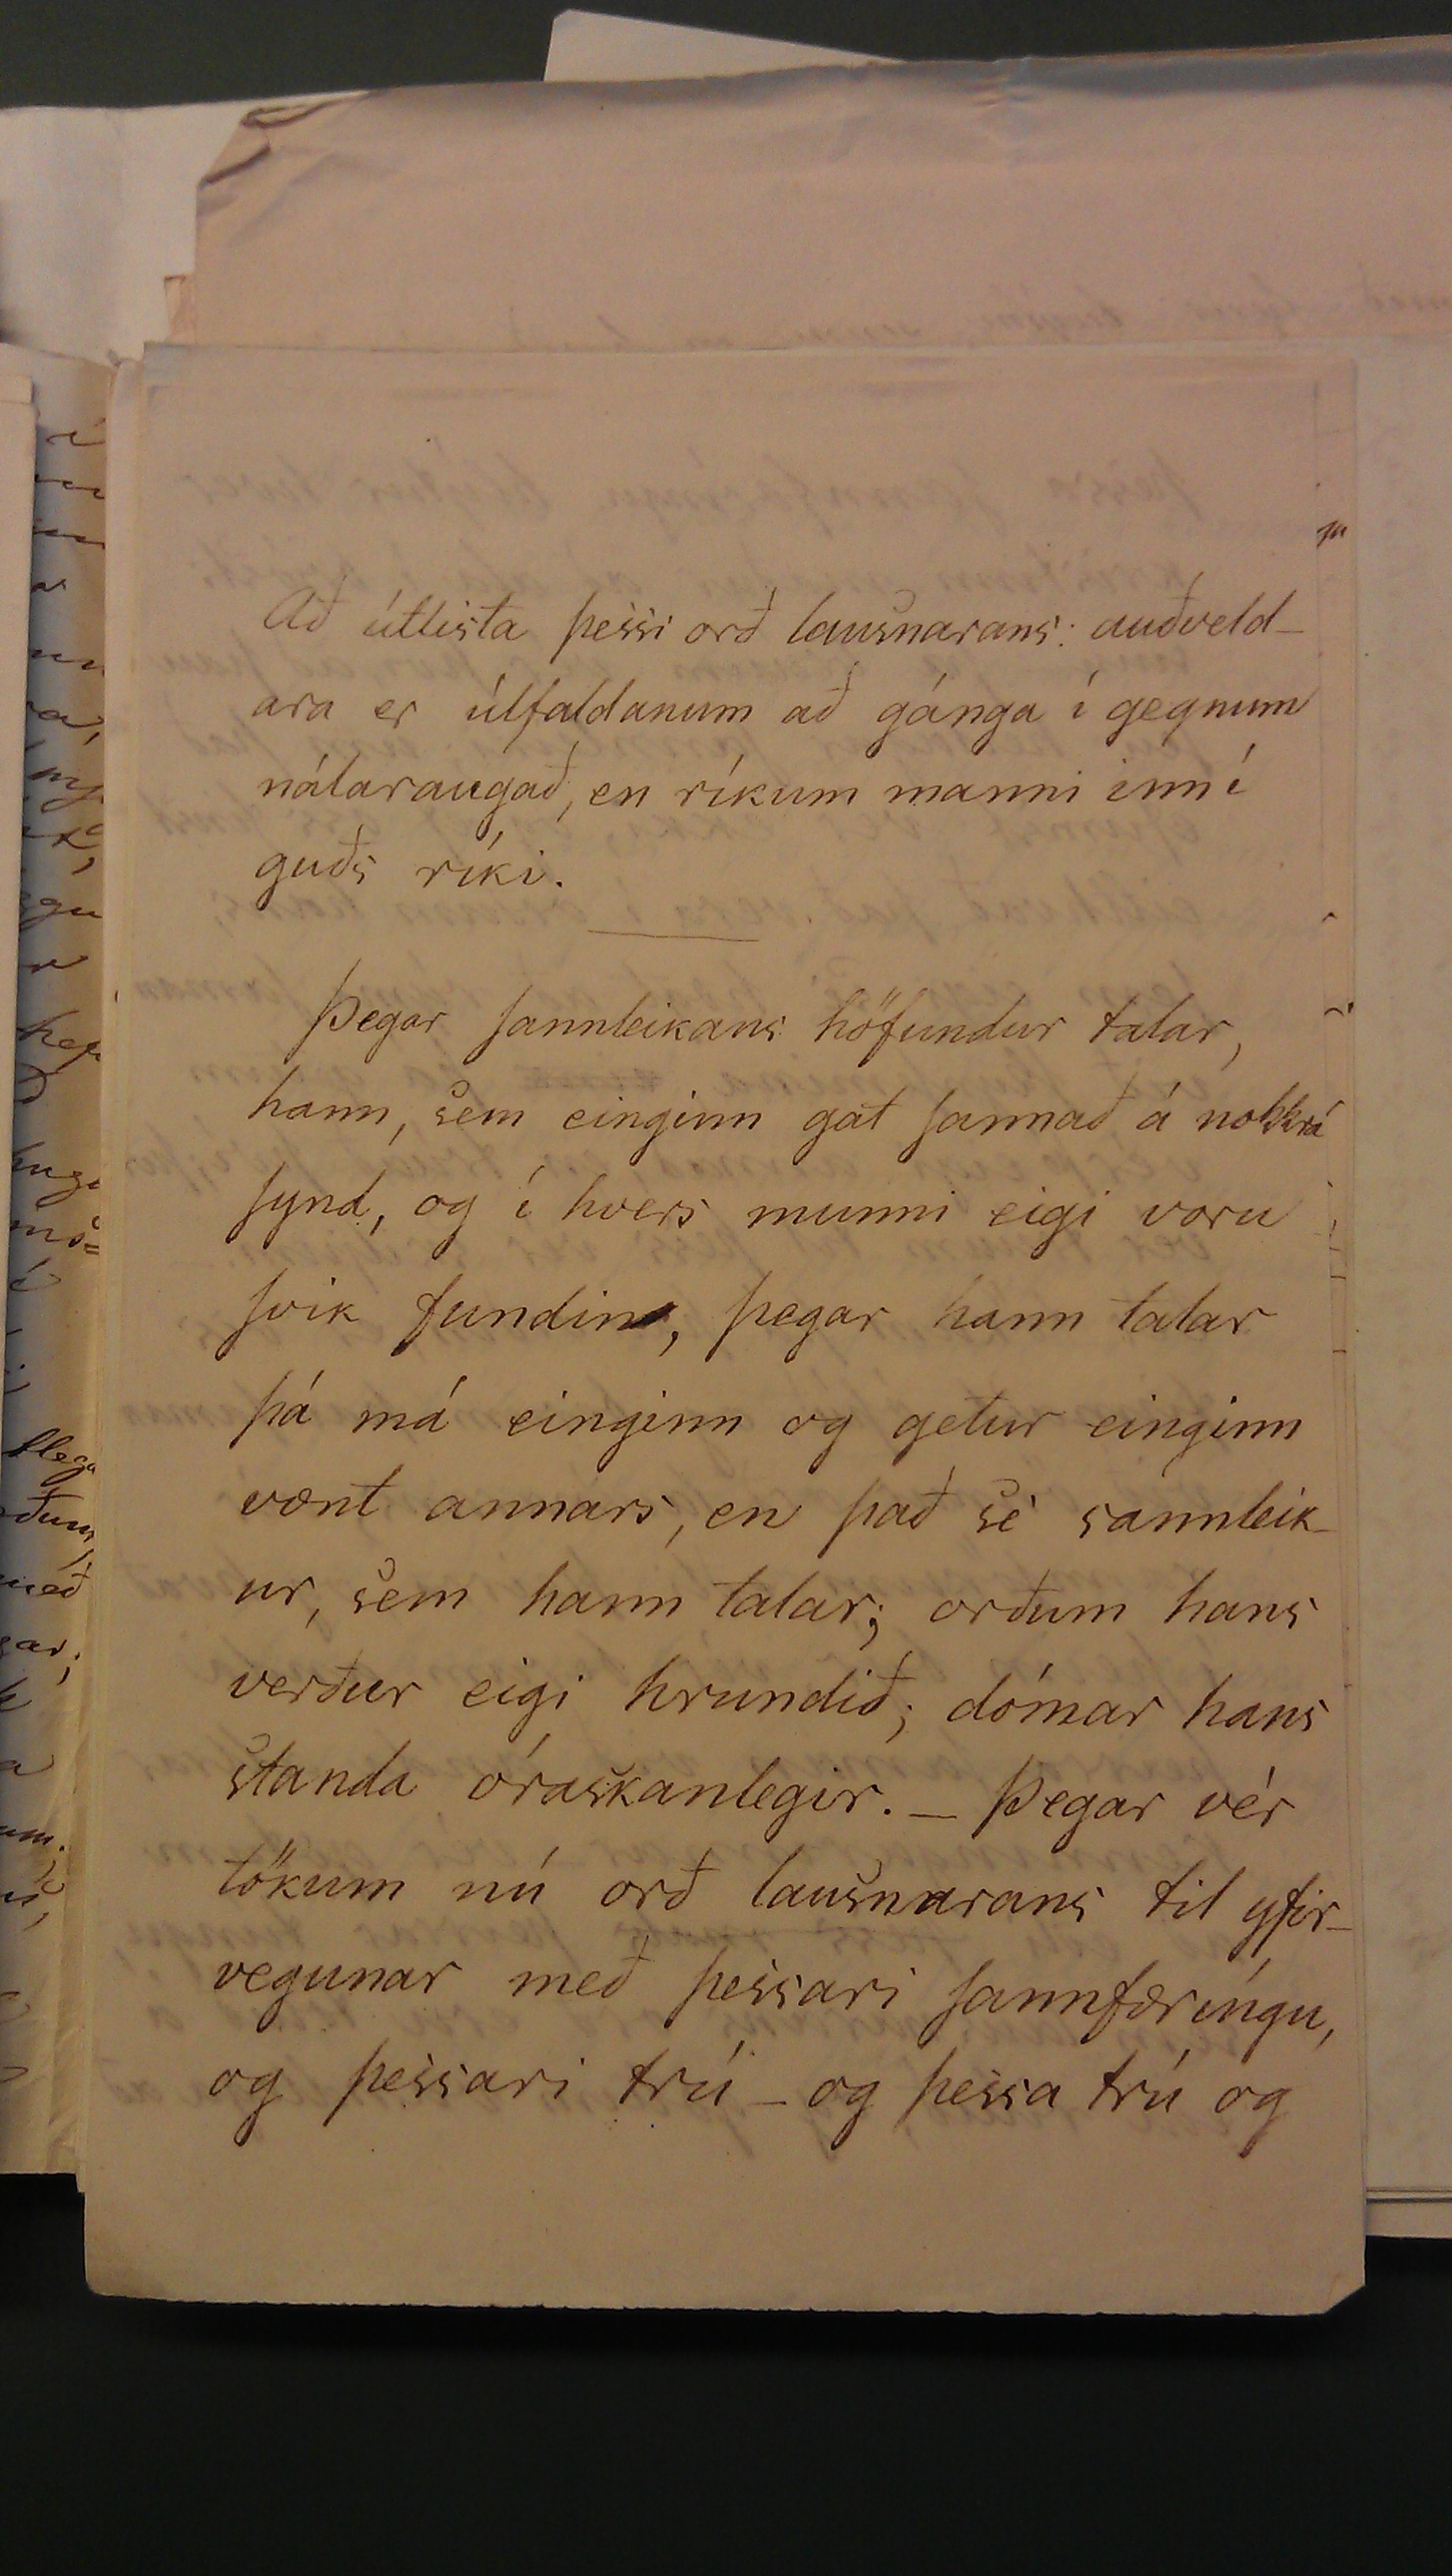 Að útlista þessi orð lausnarans: auðveld-
ara er úlfaldanum að gánga í gegnum
nálaraugað, en ríkum manni inní
guðs ríki.
Þegar sannleikans höfundur talar,
hann, sem einginn gat sannað á nokkra
synd, og í hvers munni eigi voru
svik fundin, þegar hann talar
þá má einginn og getur einginn
vænt annars, en það sé sannleik-
ur, sem hann talar; orðum hans
verður eigi hrundið; dómar hans
standa óraskanlegir. – Þegar vér
tökum nú orð lausnarans til yfir-
vegunar með þessari sannfæríngu,
og þessari trú – og þessa trú og